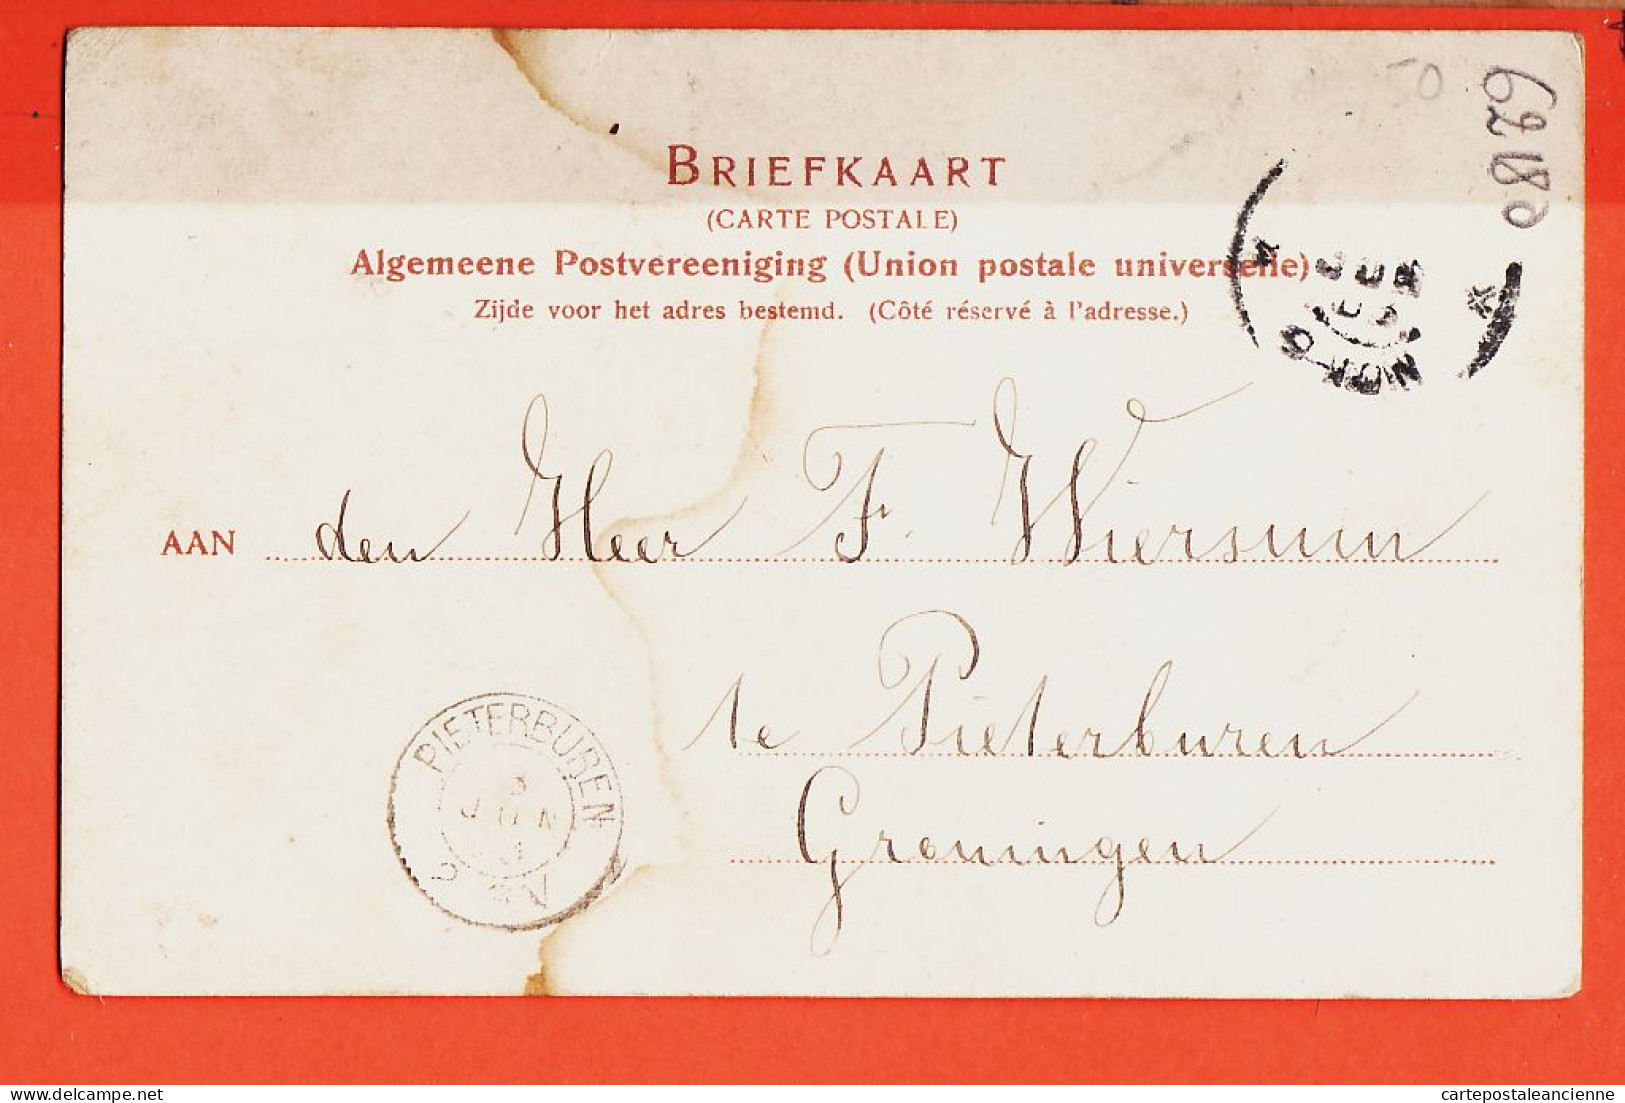 50
62180
BRIEFKAART
(CARTE POSTALE)
Algemeene Postvereeniging (Union postale universelle)
Zijde voor het adres bestemd. (Côté réservé à l'adresse.)
AAN den Heer F. Wiersum
te Pieterburen
Groningen
PIETERBUREN
JUN
cartepostaleancienne